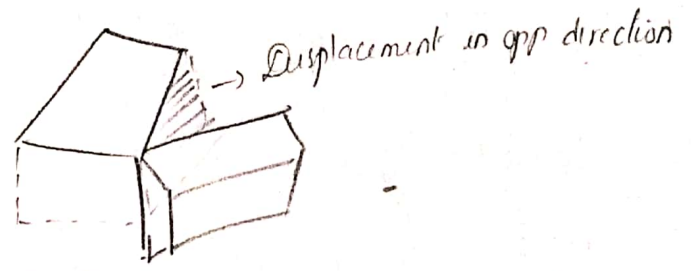 → Displacement in opp direction